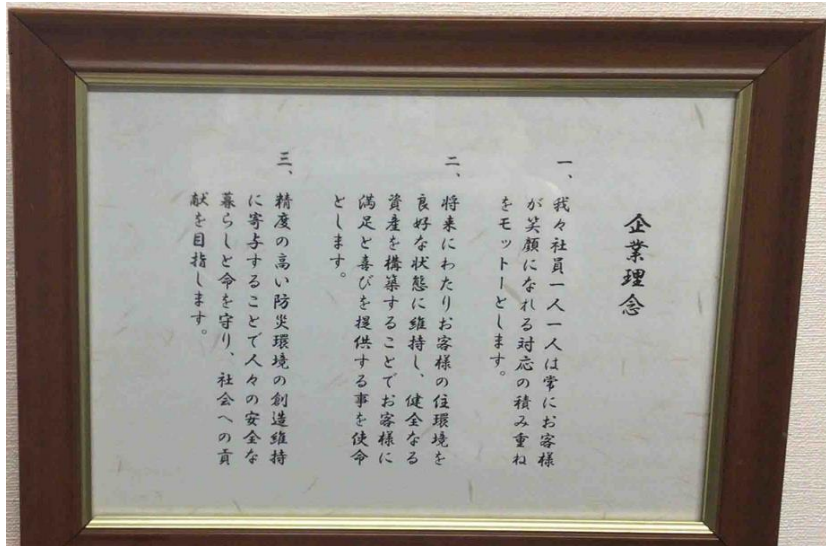 企業理念
一、我々社員一人一人は常にお客様
が笑顔になれる対応の積み重ね
をモットーとします。
二、将来にわたりお客様の住環境を
良好な状態に維持し、健全なる
資産を構築することでお客様に
満足と喜びを提供する事を使命
とします。
三、精度の高い防災環境の創造維持
に寄与することで人々の安全な
暮らしと命を守り、社会への貢
献を目指します。